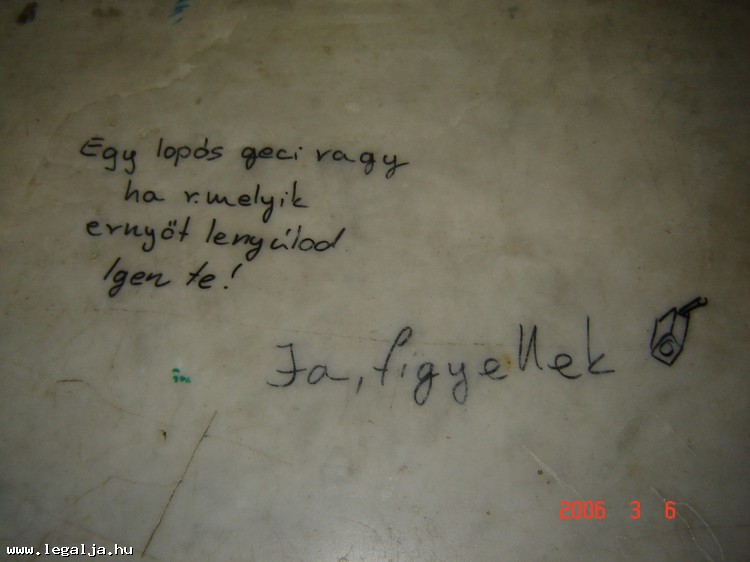 Egy lopós geci vagy
ha v.melyik
ernyőt lenyúlod
Igen te!
Ja, figyellek
2006 3 6
www.legalja.hu